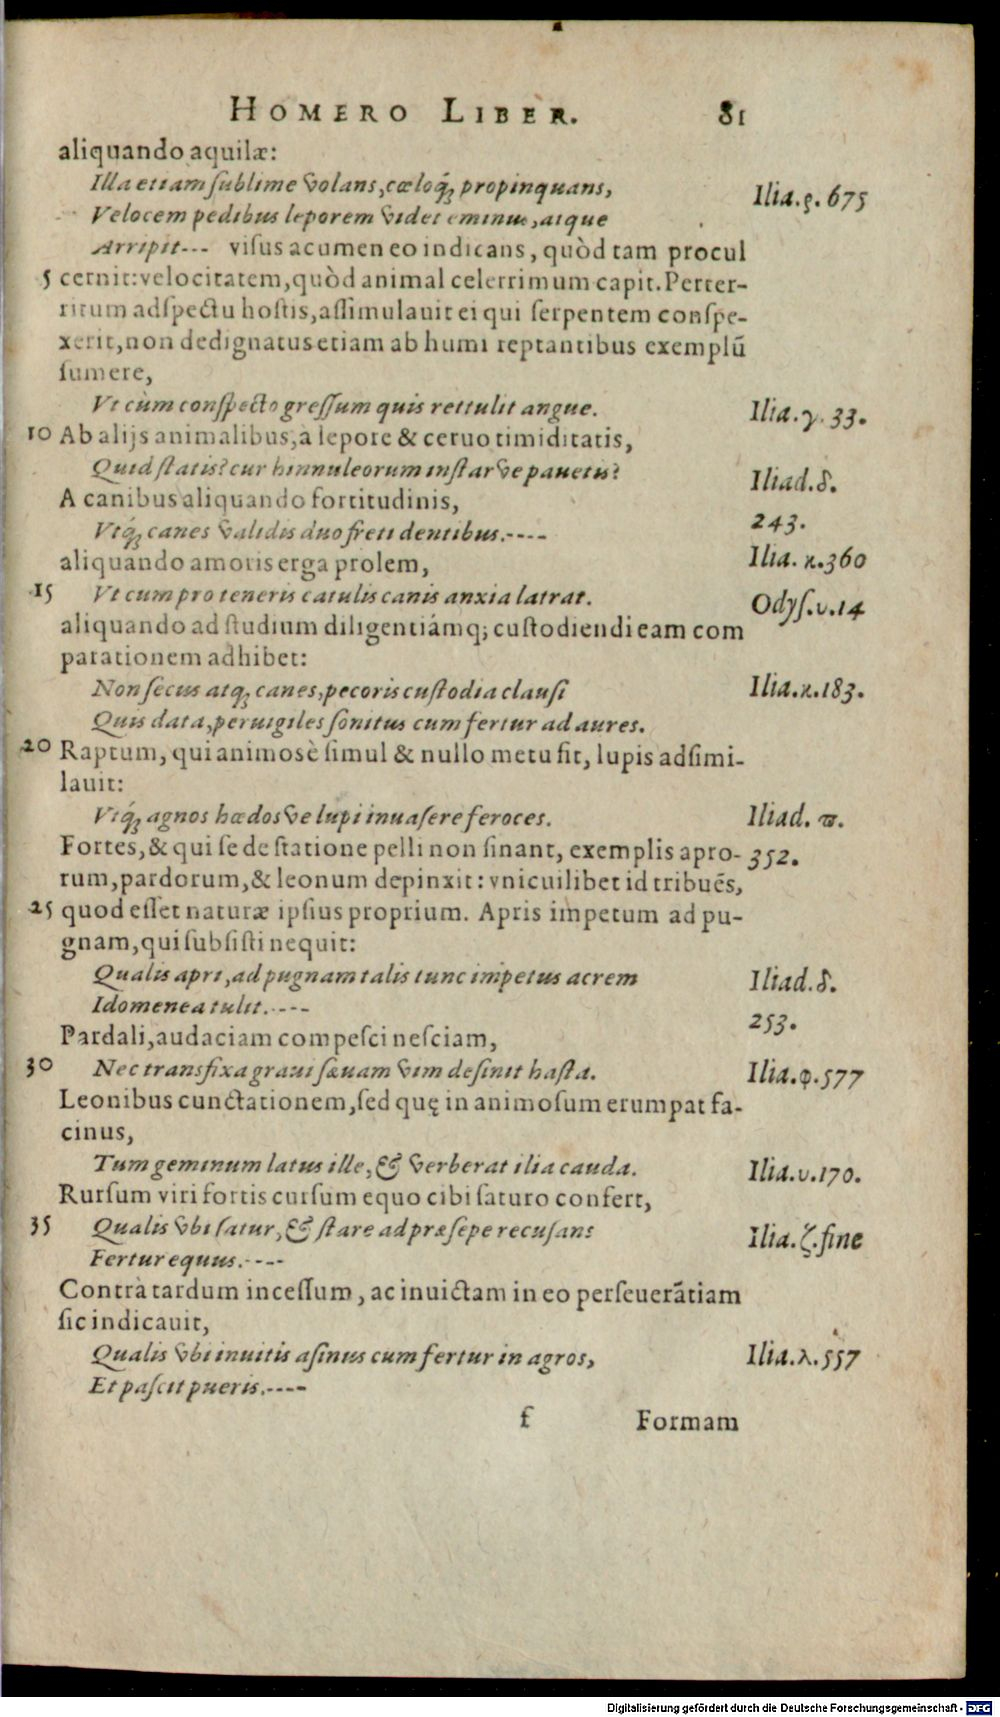 HOMERO LIBER. 81
aliquando aquilæ:
Illa etiam ſublime volans, cœloq́ꝫ propinquans, Ilia.ρ. 675
Velocem pedibus leporem videt eminus, atque
Arripit--- viſus acumen eo indicans, quòd tam procul
5 cernit: velocitatem, quòd animal celerrimum capit. Perter-
ritum adſpectu hoſtis, aſſimulauit ei qui ſerpentem conſpe-
xerit, non dedignatus etiam ab humi reptantibus exemplũ
ſumere,
Vt cùm conſpecto greſſum quis rettulit angue. Ilia.γ. 33.
10 Ab alijs animalibus, a lepore & ceruo timiditatis,
Quid ſtatis? cur hinnuleorum inſtar ve pauetis? Iliad.δ.
A canibus aliquando fortitudinis,
243.
Vtq́ꝫ canes validis duo freti dentibus.----
aliquando amoris erga prolem, Ilia. κ.360
15 Vt cum pro teneris catulis canis anxia latrat. Odyſ.υ.14
aliquando ad ſtudium diligentiámq; cuſtodiendi eam com
parationem adhibet:
Non ſecus atqꝫ canes, pecoris cuſtodia clauſi Ilia.κ.183.
Quis data, peruigiles ſonitus cum fertur ad aures.
20 Raptum, qui animosè ſimul & nullo metu fit, lupis adſimi-
lauit:
Vtq́ꝫ agnos hœdos ve lupi inuaſere feroces. Iliad. ϖ.
Fortes, & qui ſe de ſtatione pelli non ſinant, exemplis apro- 352.
rum, pardorum, & leonum depinxit: vnicuilibet id tribuẽs,
25 quod eſſet naturæ ipſius proprium. Apris impetum ad pu-
gnam, qui ſubſiſti nequit:
Qualis apri, ad pugnam talis tunc impetus acrem Iliad.δ.
Idomenea tulit.----
253.
Pardali, audaciam compeſci neſciam,
30 Nec transfixa graui ſæuam vim deſinit haſta. Ilia.φ.577
Leonibus cunctationem, ſed quę in animoſum erumpat fa-
cinus,
Tum geminum latus ille, & verberat ilia cauda. Ilia.υ.170.
Rurſum viri fortis curſum equo cibi ſaturo confert,
35 Qualis vbi ſatur, & ſtare ad præſepe recuſans Ilia.ζ.fine
Fertur equus.----
Contrà tardum inceſſum, ac inuictam in eo perſeuerãtiam
ſic indicauit,
Qualis vbi inuitis aſinus cum fertur in agros, Ilia.λ.557
Et paſcit pueris.----
f Formam
Digitalisierung gefördert durch die Deutsche Forschungsgemeinschaft - DFG